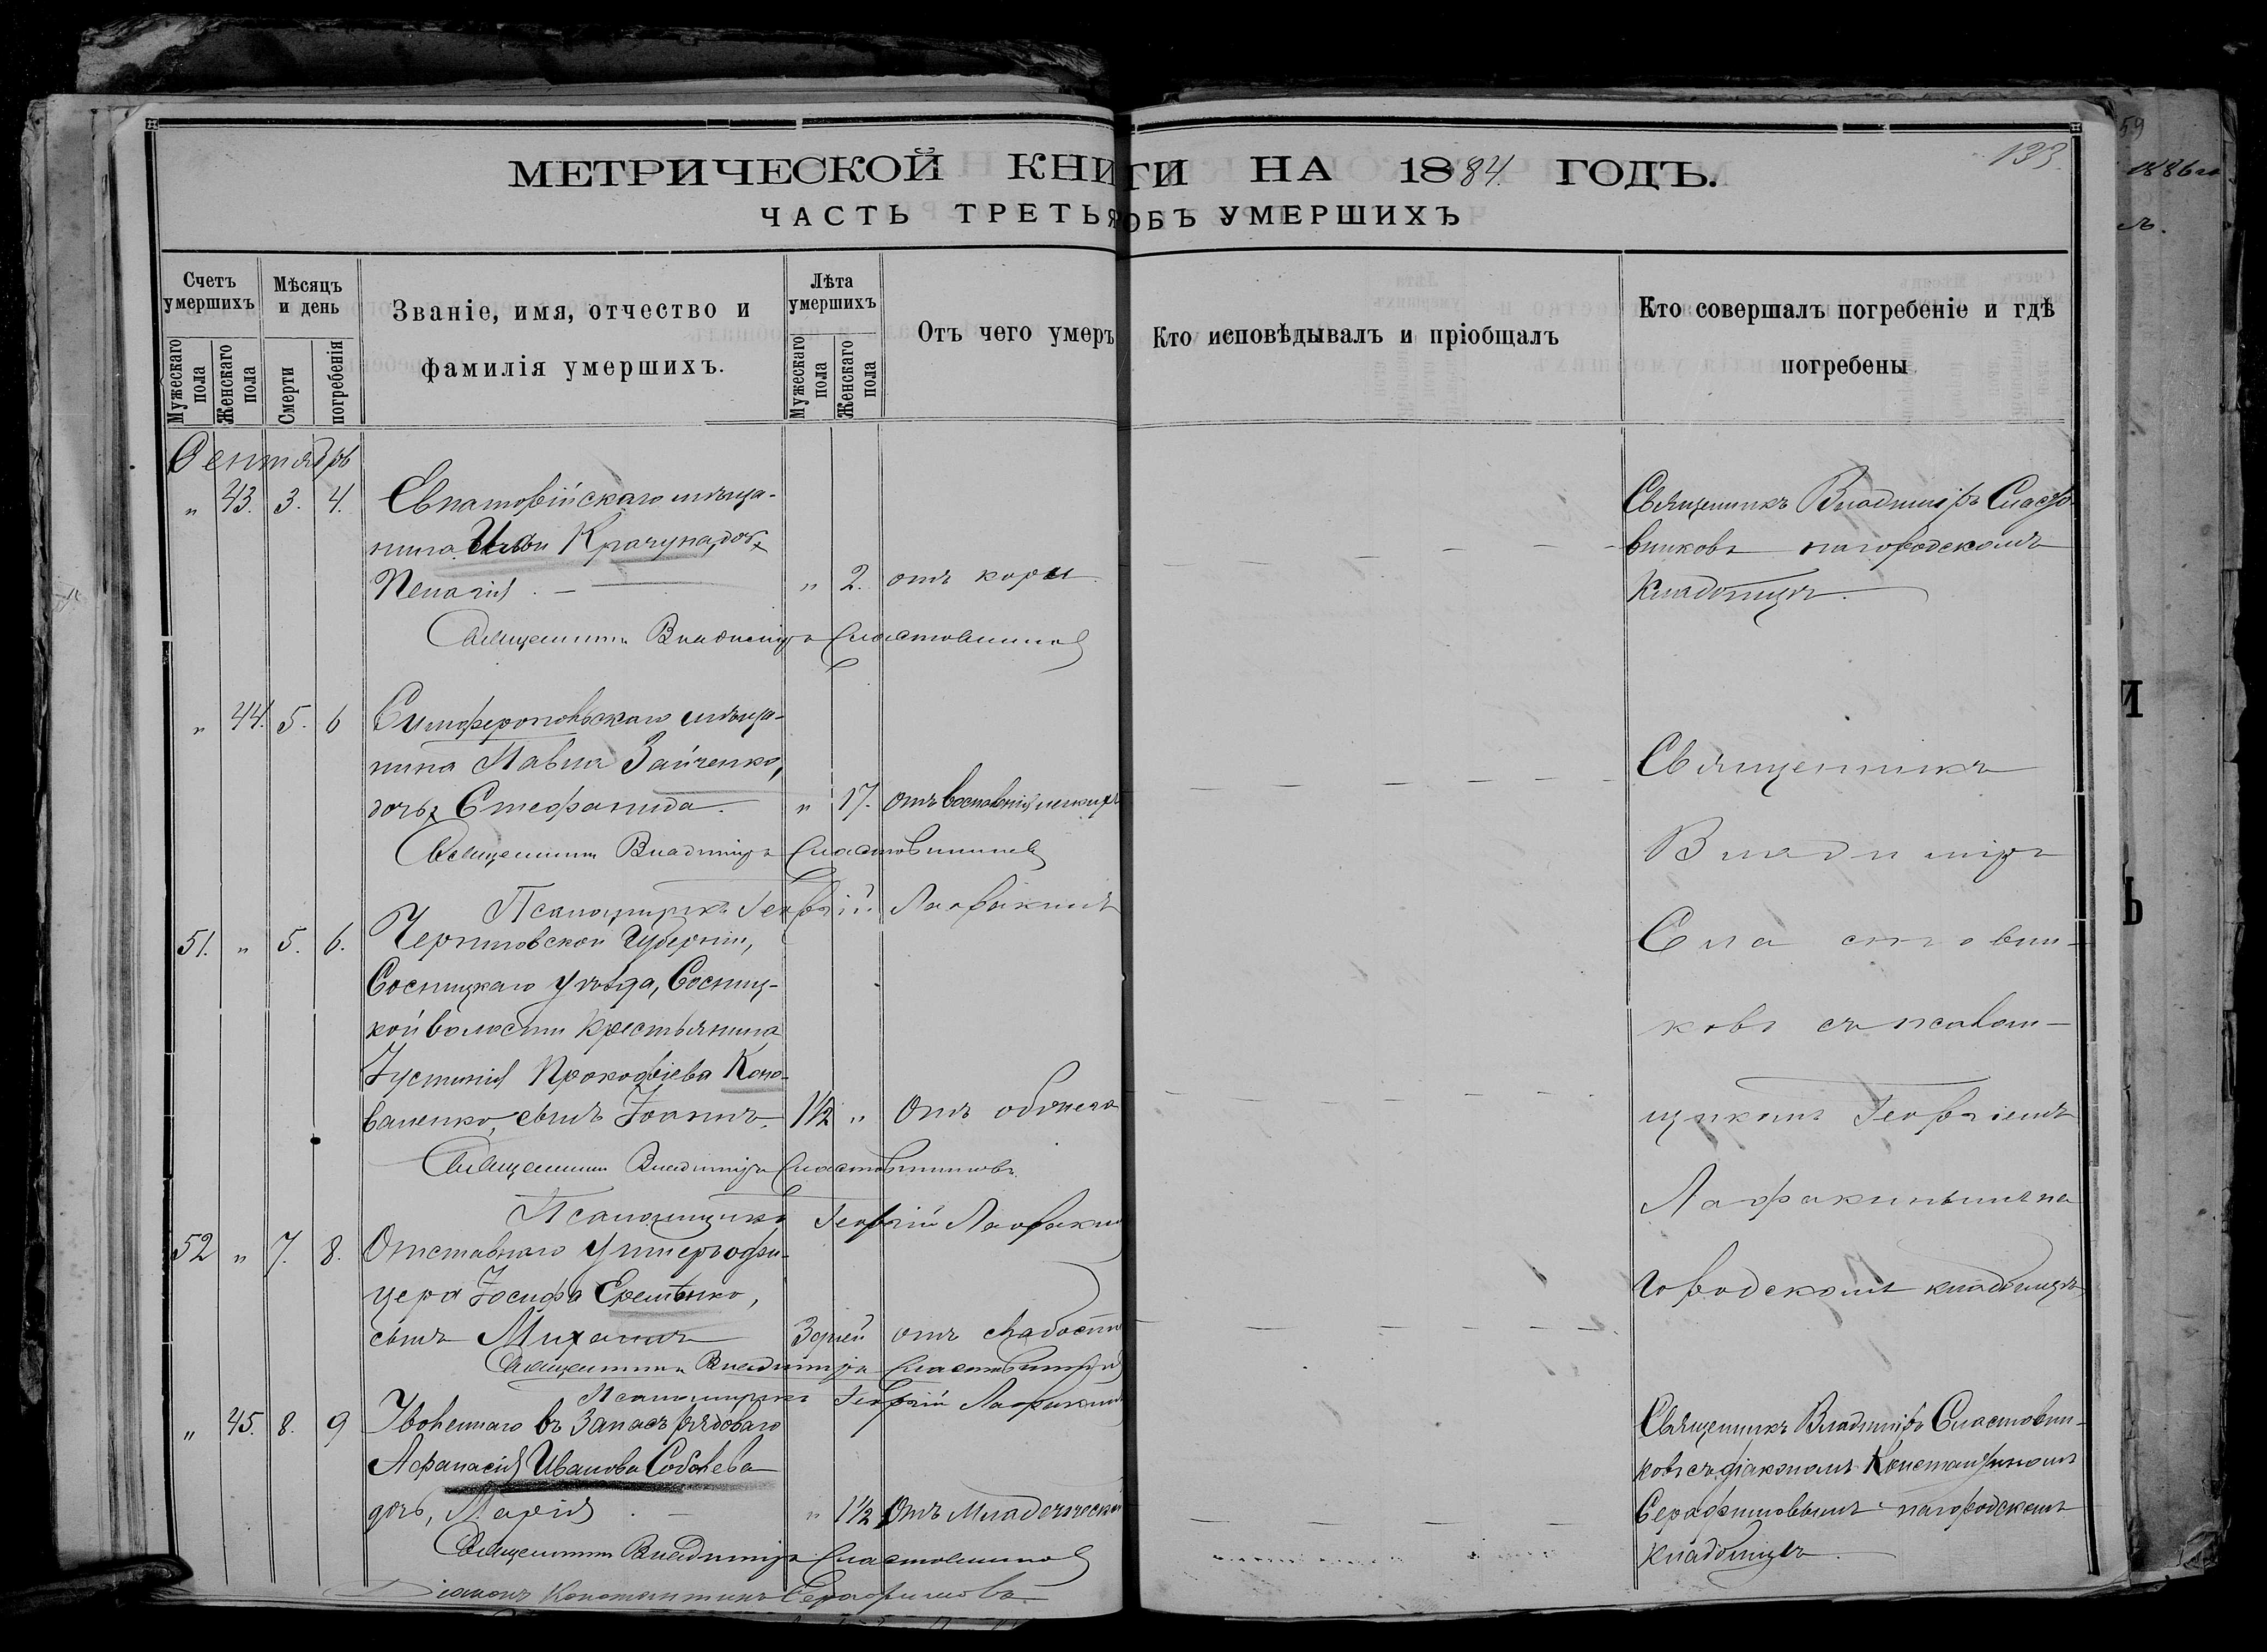 МЕТРИЧЕСКОЙ КНИГИ НА 1884. ГОДЪ.
133
ЧАСТЬ ТРЕТЬЯ ОБЪ УМЕРШИХЪ
Счетъ умершихъ
Мѣсяцъ и день
Званіе, имя, отчество и фамилія умершихъ.
Лѣта умершихъ
Отъ чего умеръ
Кто исповѣдывалъ и пріобщалъ
Кто совершалъ погребеніе и гдѣ погребены
Мужескаго пола
Женскаго пола
Смерти
погребенія
Мужескаго пола
Женскаго пола
Сентябрь
„ 43. 3. 4. Евпаторійскаго мѣща-
нина Крачуна, дочь
Пелагія „ 2. отъ кори
Священникъ Владиміръ Сластовниковъ
Священникъ Владиміръ Сласто-
вниковъ на городскомъ
кладбищѣ.
„ 44. 5. 6 Симферопольскаго мѣща-
нина Павла Зайченко,
дочь Стефанида. „ 17. Отъ воспаленія
Священникъ Владиміръ Сластовниковъ
Псаломщикъ Георгій Лафакинъ
51. „ 5. 6. Черниговской Губерніи,
Сосницкаго уѣзда, Сосниц-
кой волости крестьянина
Іустинія Прокофіева Коно-
валенко, сынъ Іоаннъ. 1½ „ Отъ
Священникъ Владиміръ Сластовниковъ
Псаломщикъ Георгій Лафакинъ
52 „ 7. 8. Отставнаго Унтеръ офи-
цера Іосифа Еременко,
сынъ Михаилъ 3 дней отъ слабости
Священникъ Владиміръ Сластовниковъ
Псаломщикъ Георгій Лафакинъ
Священникъ
Владиміръ
Сластовни-
ковъ съ псалом-
щикомъ Георгіемъ
Лафакинымъ на
городскомъ кладбищѣ
„ 45. 8. 9 Уволеннаго въ Запасъ рядоваго
Афанасія Иванова Соболева
дочь, Марія „ 1½ Отъ Младенческой
Священникъ Владиміръ Сластовниковъ
Діаконъ Константинъ Серафимовъ.
Священникъ Владиміръ Сластовни-
ковъ съ діакономъ Константиномъ
Серафимовымъ на городскомъ
кладбищѣ.
59
1886 го